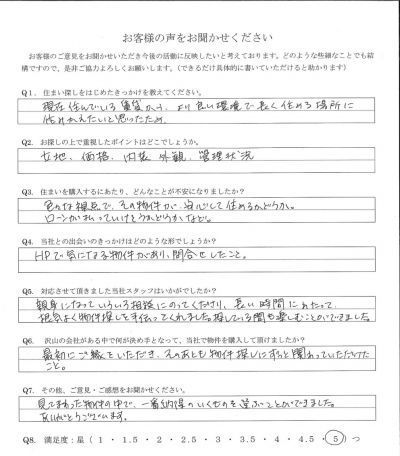 お客様の声をお聞かせください
お客様のご意見をお聞かせいただき今後の活動に反映したいと考えております。どのような些細なことでも結
構ですので、是非ご協力よろしくお願いします。（できるだけ具体的に書いていただけると助かります）
Q1. 住まい探しをはじめたきっかけを教えてください。
現在住んでいる賃貸から、より良い環境で長く住める場所に
住みかえたいと思ったため。
Q2. お探しの上で重視したポイントはどこでしょうか。
立地、価格、内装 外観、管理状況
Q3. 住まいを購入するにあたり、どんなことが不安になりましたか？
色々な視点で、その物件が安心して住めるかどうか。
ローンが払っていけそうかどうかなど。
Q4. 当社との出会いのきっかけはどのような形でしょうか？
HPで気になる物件があり、問合せしたこと。
Q5. 対応させて頂きました当社スタッフはいかがでしたか？
親身になっていろいろ相談にのってくださり、長い時間にわたって
根気よく物件探しを手伝ってくれました。探している間も楽しむことができました。
Q6. 沢山の会社がある中で何が決め手となって、当社で物件を購入して頂けましたか？
最初にご縁をいただき、そのあとも物件探しにずっと関わっていただけた
こと。
Q7. その他、ご意見・ご感想をお聞かせください。
見てまわった物件の中で、一番納得のいくものを選ぶことができました。
ありがとうございます。
Q8. 満足度：星（ 1 ・ 1.5 ・ 2 ・ 2.5 ・ 3 ・ 3.5 ・ 4 ・ 4.5 ・ 5 ）つ